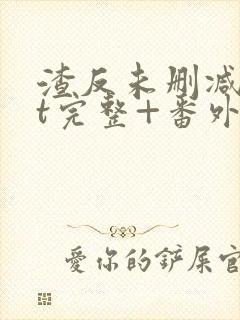 渣反未删减
t完整+番外
爱你的铲屎官